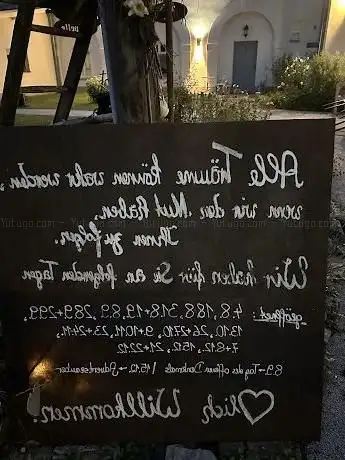 Alle Träume können wahr werden,
Yutugo.com – Yutugo.com – Yutugo.com – Yutugo.com
wenn wir den Mut haben,
Ihnen zu folgen.
Wir haben für Sie an folgenden Tagen
geöffnet: 4.8, 18.8, 31.8+1.9, 8.9, 28.9+29.9,
13.10, 26.+27.10, 9.+10.11, 23.+24.11.
7.+8.12, 15.12, 21.+22.12
8.9.→Tag des offenen Denkmals / 15.12.→
♡lich Willkommen!